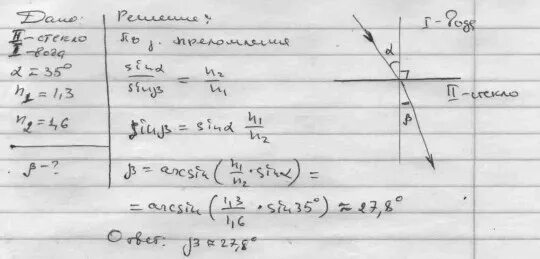 Дано:
II-стекло
I-вода
α = 35°
n₁ = 1,3
n₂ = 1,6
β - ?
Решение:
По з. преломления
sinα / sinβ = n₂ / n₁
sinβ = sinα n₁/n₂
β = arcsin (n₁/n₂ · sinα) =
= arcsin (1,3/1,6 · sin 35°) ≈ 27,8°
Ответ: β ≈ 27,8°
I - вода
α
II - стекло
β